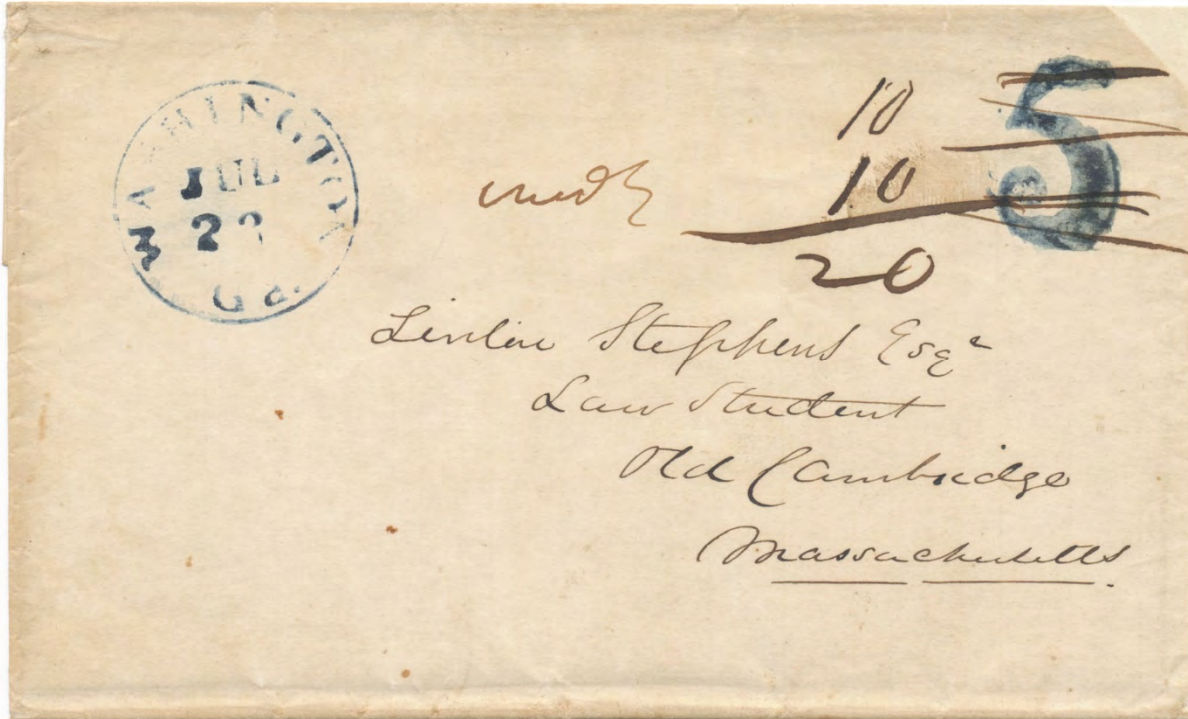 WASHINGTON
JUL
23
GA.
5
10
10
20
Linton Stephens Esqr
Law Student
Old Cambridge
Massachusetts.